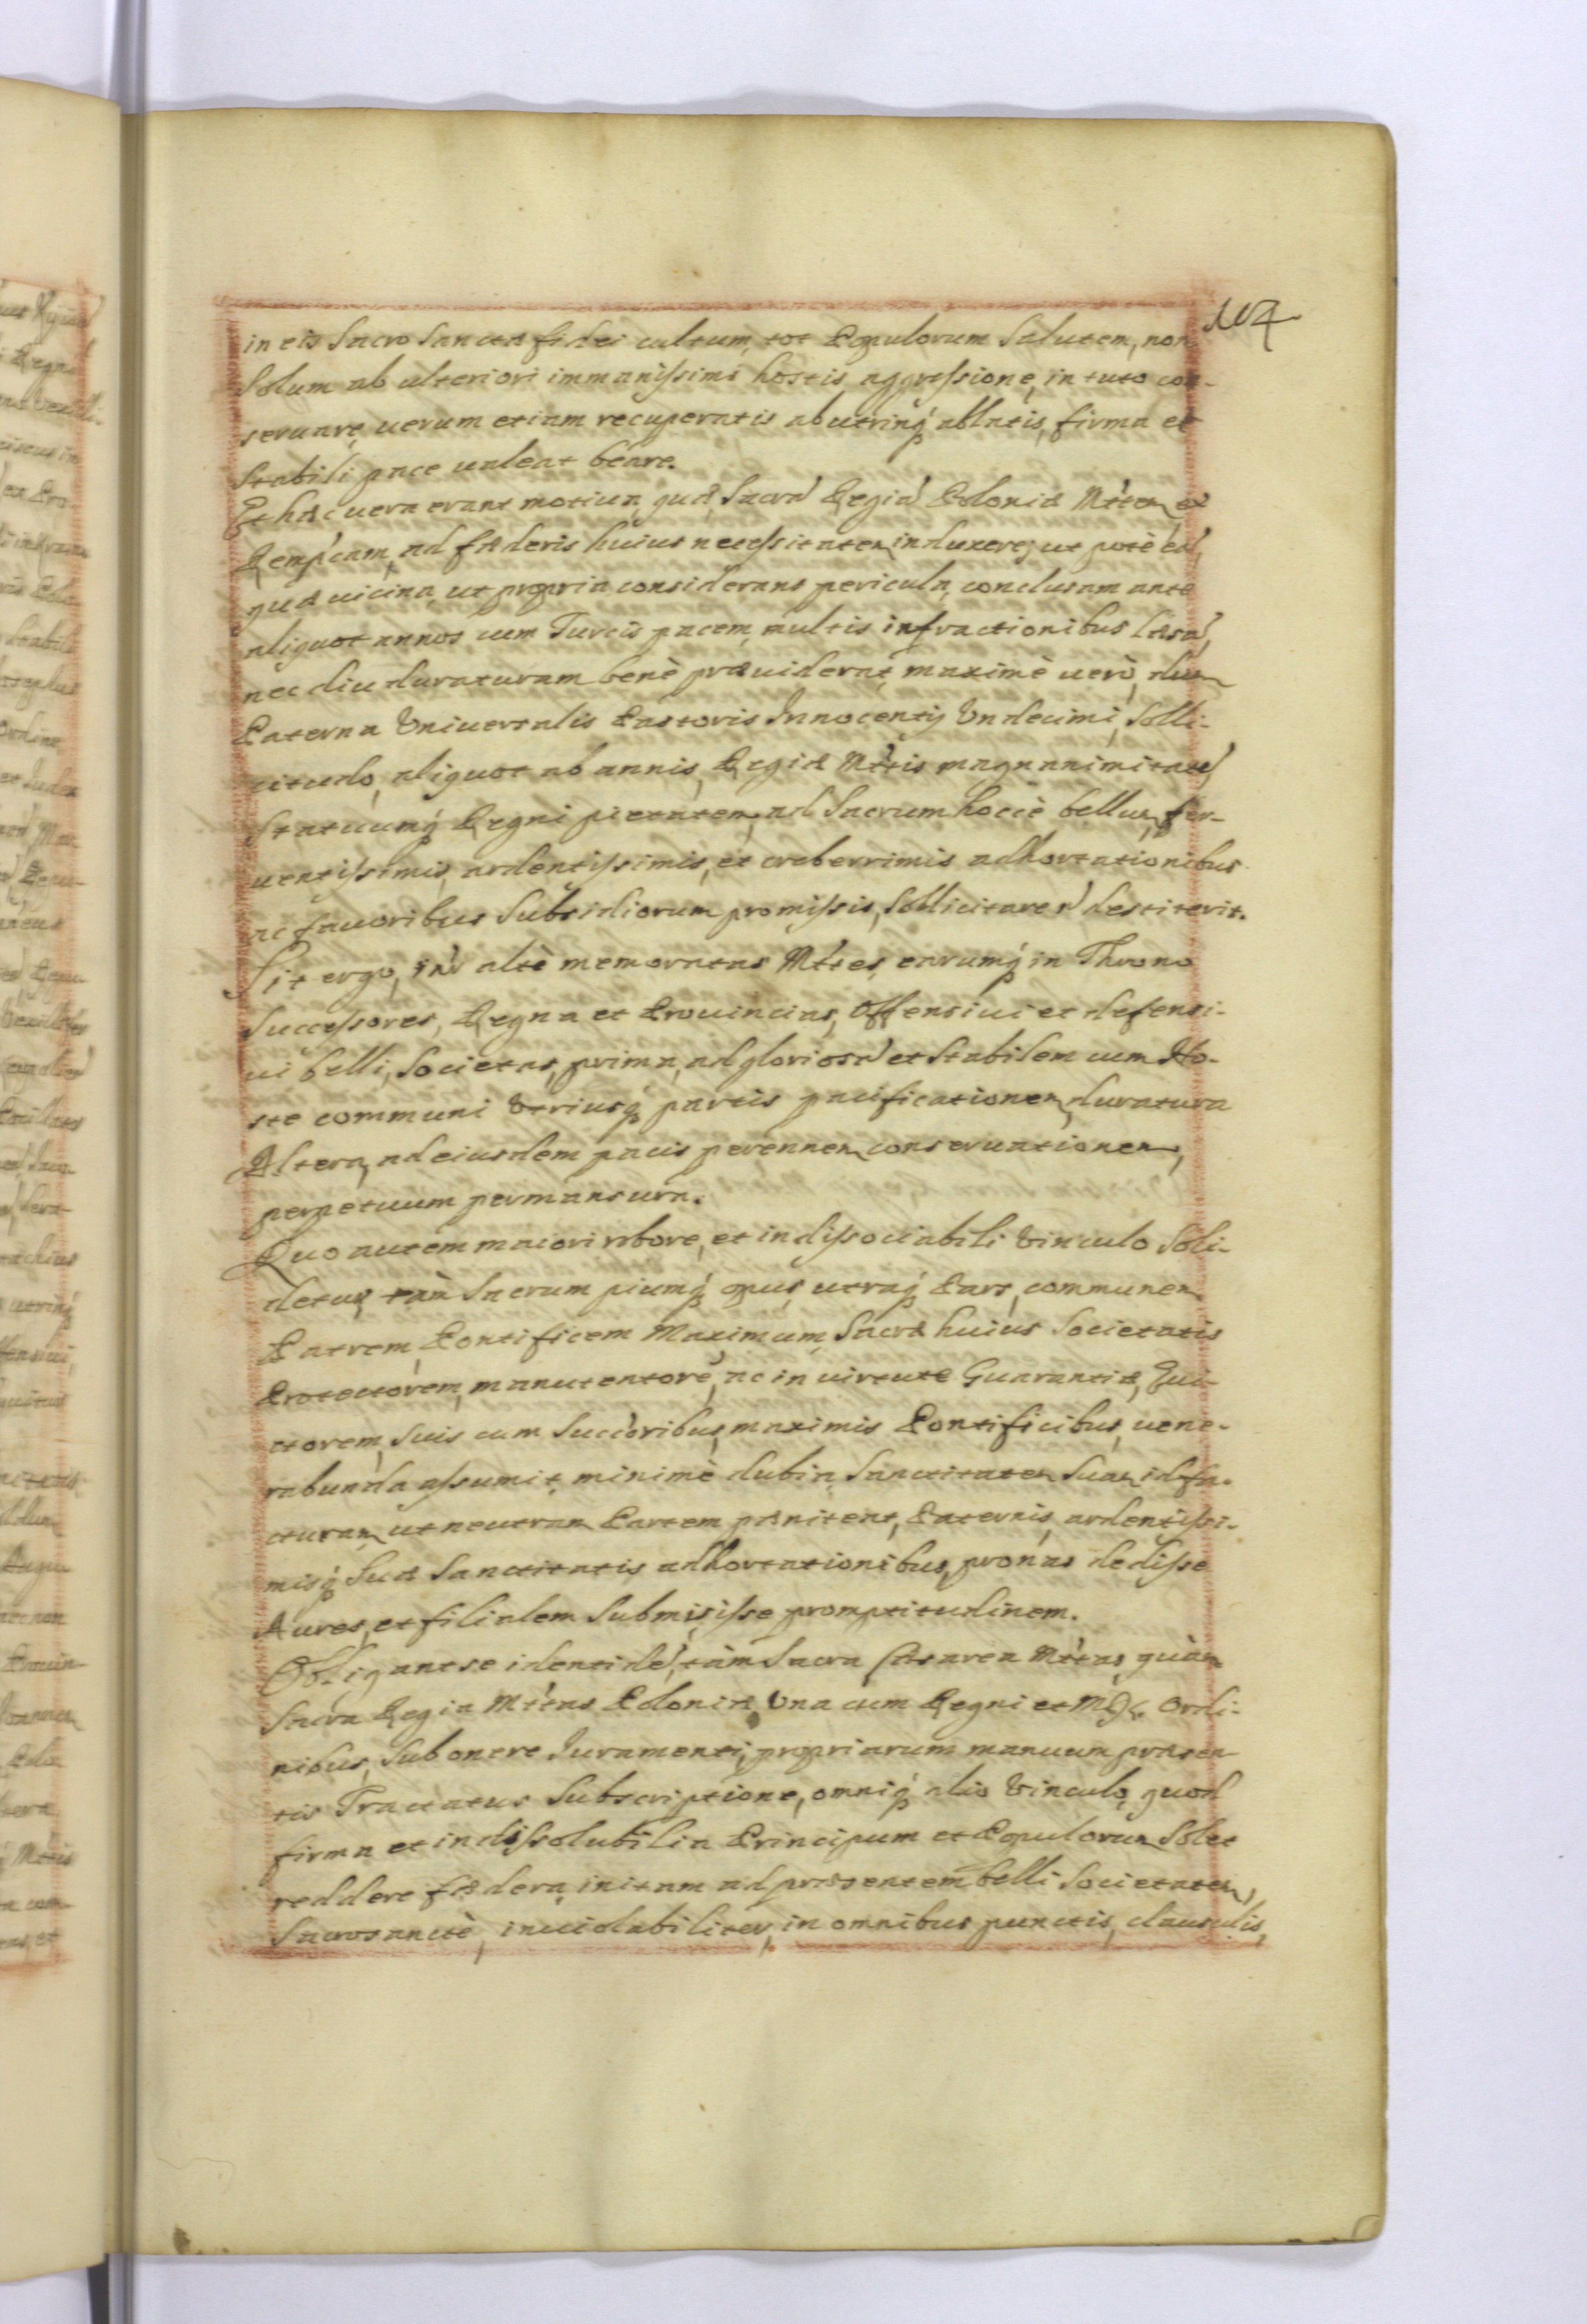 104
in eis Sacro Sanctæ fidei cultum, tot Populorum Salutem, non
Solum ab ulteriori immanissimi hostis aggressione, in tuto con-
seruare, uerum etiam recuperatis ab utrinq́ ablatis, firma et
Stabili pace ualeat beare.
Et hæc uera erant motiua, quæ Sacrā Regiā Poloniæ Mttem et
Rempcam, ad fæderis huius necessitatem induxere; ut potè
quæ uicina, ut propria considerans pericula, conclusam ante
aliquot annos cum Turcis pacem, multis infractionibus læsā,
nec diu duraturam benè præuiderat, maximè uerò, dum
Paterna Vniuersalis Pastoris Innocentij Vndecimi, Solli-
citudo, aliquot ab annis, Regiæ Mttis magnanimitatē,
Statuumq́ Regni pietatem, ad Sacrum hocce bellum, fer-
uentissimis, ardentissimis, et creberrimis adhortationibus
ac fauoribus Subsidiorum promissis, Sollicitare ñ destiterit.
Sit ergo, inr̄ altè memoratas Mttes, earumq́ in Throno
Successores, Regna et Prouincias, Offensiui et defensi-
ui belli, Societas, prima, ad gloriosā et Stabilem cum Ho-
ste communi Vtriusq́ partis pacificationem, duratura
Altera, ad eiusdem pacis perennem conseruationem,
perpetuum permansura.
Quo autem maiori robore, et indissociabili Vinculo Soli-
detur, tàm Sacrum piumq́ opus, utraq́ Pars, communem
Patrem, Pontificem Maximum, Sacræ huius Societatis
Protectorem, manutentorē, ac in uirtute Guarantiæ, Eui-
ctorem, Suis cum Succ̄oribus, maximis Pontificibus, uene-
rabunda assumit, minimè dubia, Sanctitatem Suam id fa-
cturam, ut neutram Partem pæniteat, Paternis, ardentissi-
misq́ Suæ Sanctitatis adhortationibus, pronas dedisse
Aures, et filialem Submisisse promptitudinem.
Obligant se identidē, tàm Sacra Cæsarea Mttas, quàm
Sacra Regia Mttas Poloniæ Vna cum Regni et M. D. L. Ordi-
nibus, Sub onere Iuramenti, propriarum manuum præsen-
tis Tractatus Subscriptione, omniq́ alio Vinculo, quod
firma et indissolubilia Principum et Populorum Solet
reddere fædera, initam ad præsentem belli Societatem,
Sacrosanctè, inuiolabiliter, in omnibus punctis, clausulis,